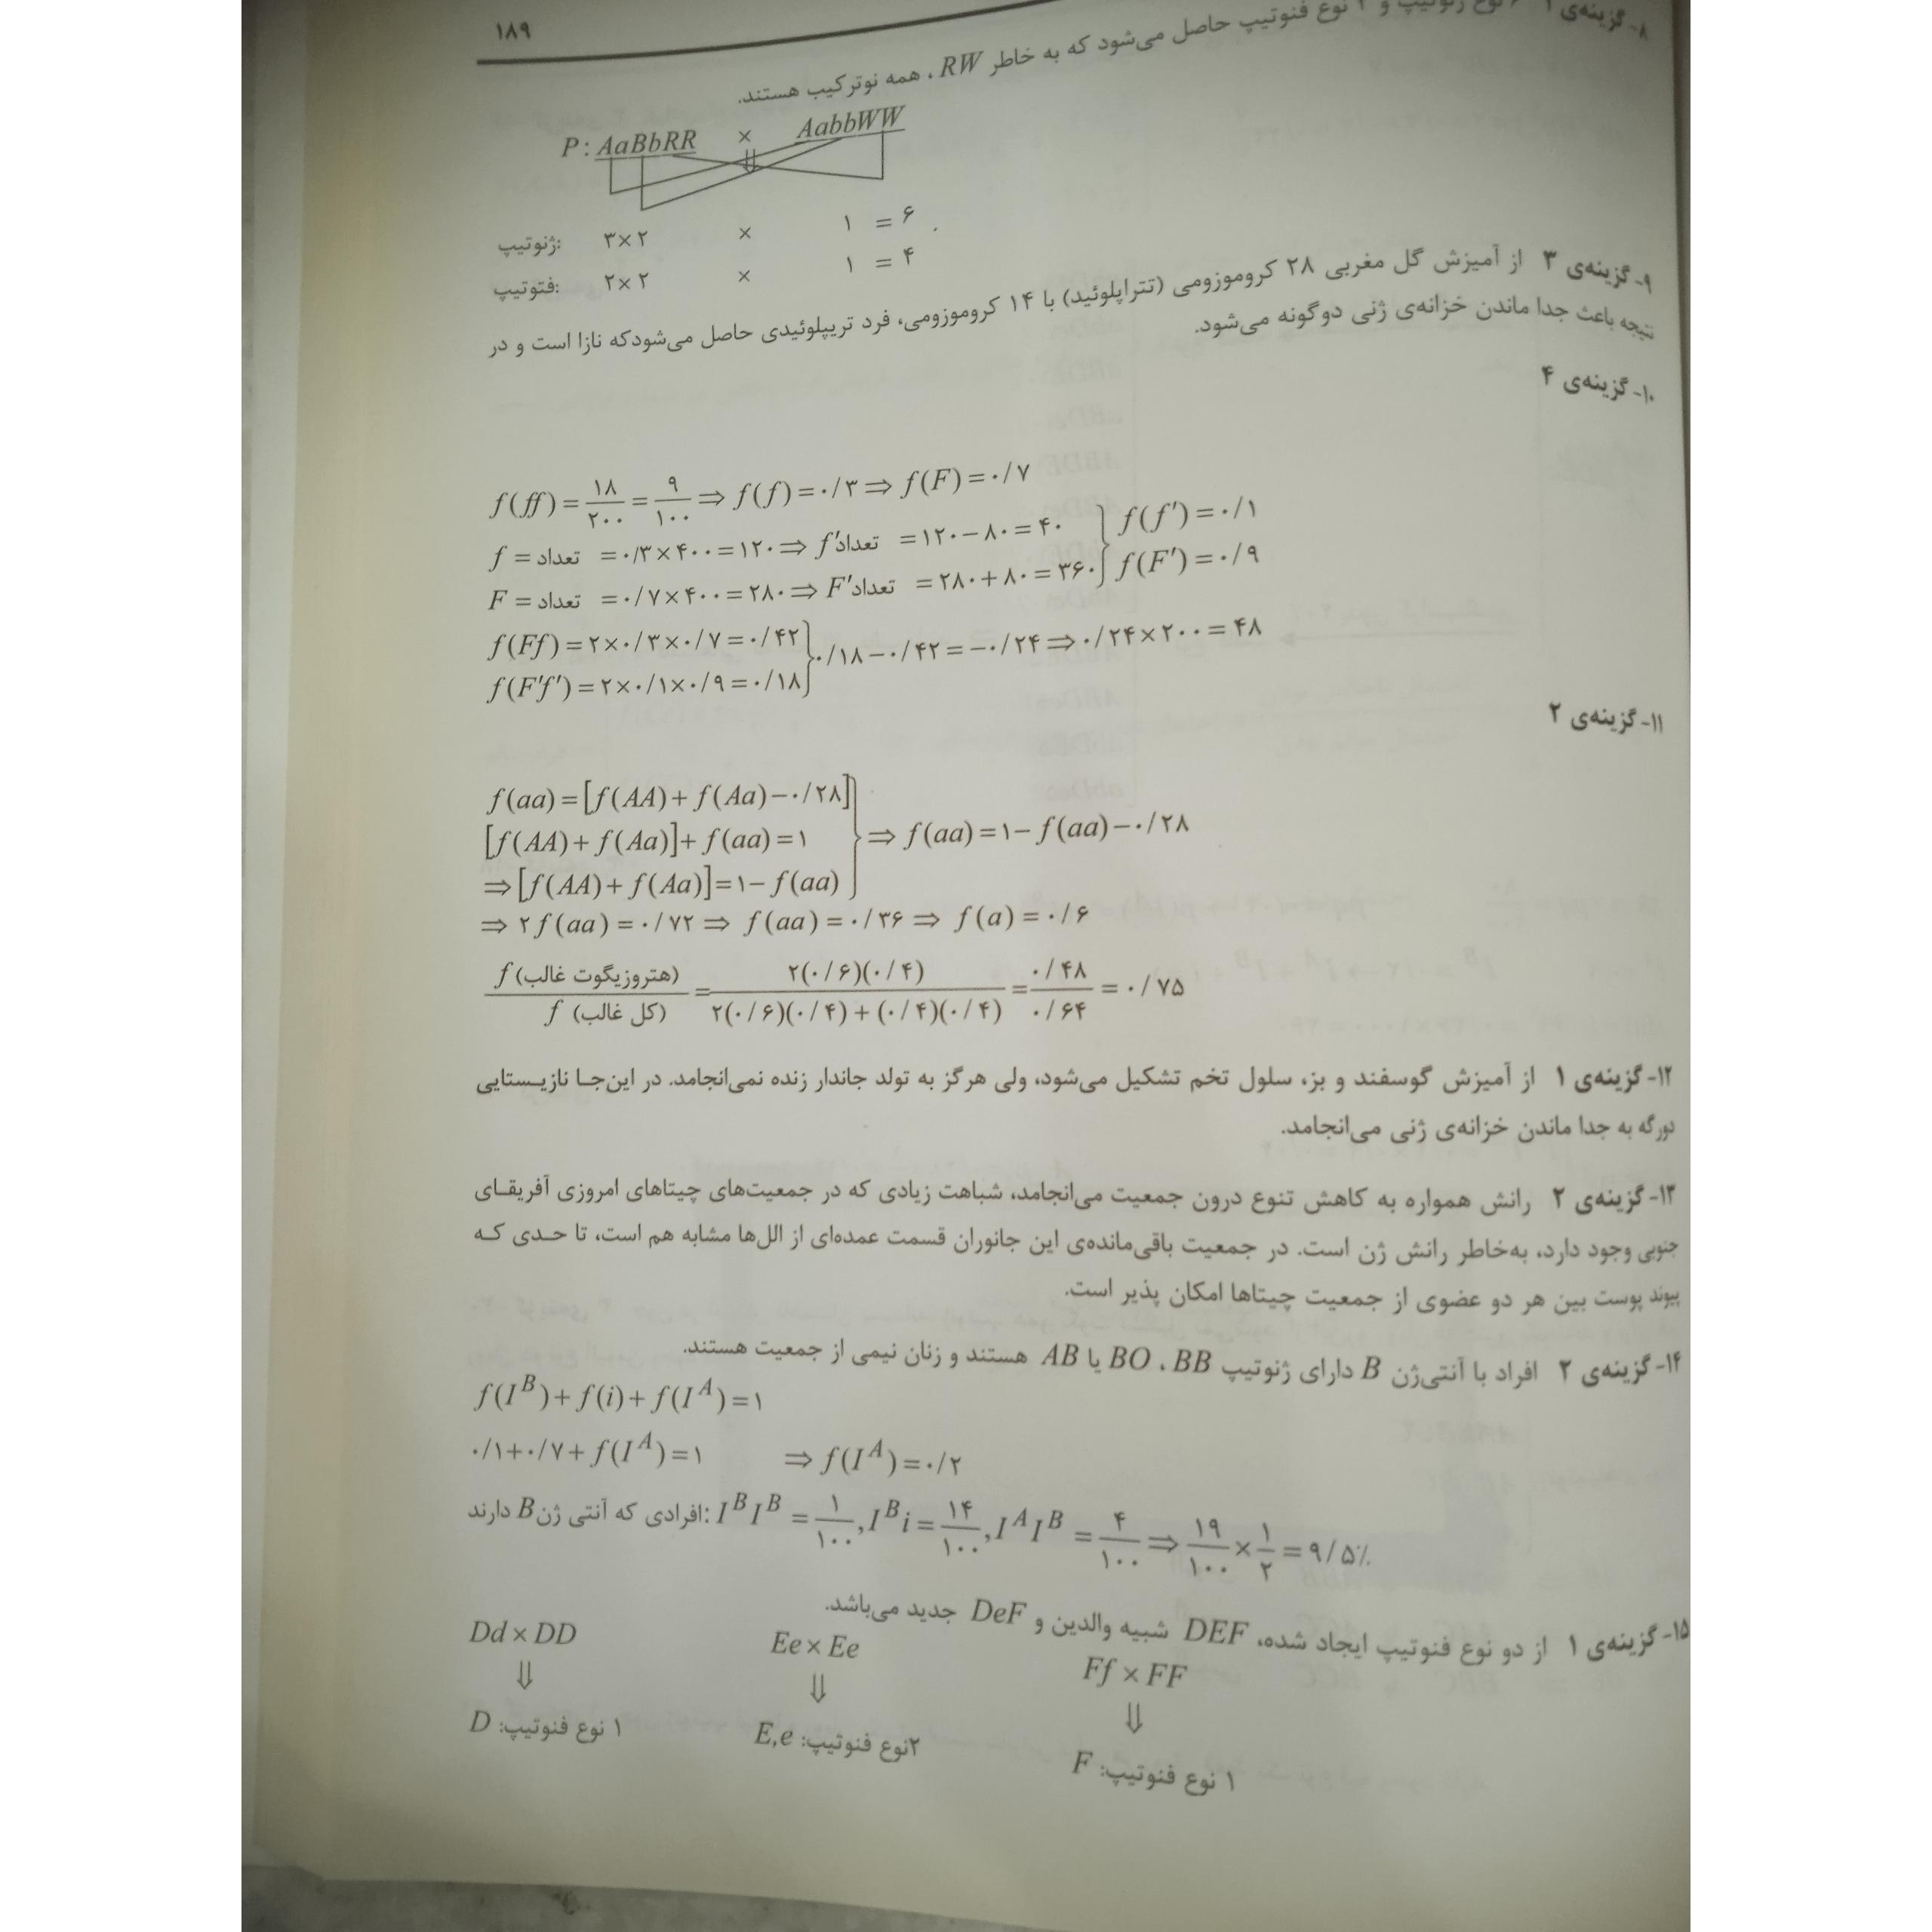 ۱۸۹
۸- گزینه‌ی نوع ژنوتیپ و نوع فنوتیپ حاصل می‌شود که به خاطر RW، همه نوترکیب هستند.
P : AaBbRR × AabbWW
⇓
ژنوتیپ: ۳×۲ × ۱ = ۶
فتوتیپ: ۲×۲ × ۱ = ۴
۹- گزینه‌ی ۳ از آمیزش گل مغربی ۲۸ کروموزومی (تتراپلوئید) با ۱۴ کروموزومی، فرد تریپلوئیدی حاصل می‌شودکه نازا است و در
نتیجه باعث جدا ماندن خزانه‌ی ژنی دوگونه می‌شود.
۱۰- گزینه‌ی ۴
f(ff) = ۱۸/۲۰۰ = ۹/۱۰۰ ⇒ f(f) = ۰/۳ ⇒ f(F) = ۰/۷
f = تعداد = ۰/۳×۴۰۰ = ۱۲۰ ⇒ f′تعداد = ۱۲۰−۸۰ = ۴۰ } f(f′) = ۰/۱
F = تعداد = ۰/۷×۴۰۰ = ۲۸۰ ⇒ F′تعداد = ۲۸۰+۸۰ = ۳۶۰ } f(F′) = ۰/۹
f(Ff) = ۲×۰/۳×۰/۷ = ۰/۴۲ } ۰/۱۸−۰/۴۲ = −۰/۲۴ ⇒ ۰/۲۴×۲۰۰ = ۴۸
f(F′f′) = ۲×۰/۱×۰/۹ = ۰/۱۸
۱۱- گزینه‌ی ۲
f(aa) = [f(AA) + f(Aa) −۰/۲۸]
[f(AA) + f(Aa)] + f(aa) = ۱ } ⇒ f(aa) = ۱− f(aa) −۰/۲۸
⇒ [f(AA) + f(Aa)] = ۱− f(aa)
⇒ ۲f(aa) = ۰/۷۲ ⇒ f(aa) = ۰/۳۶ ⇒ f(a) = ۰/۶
f (هتروزیگوت غالب) / f (کل غالب) = ۲(۰/۶)(۰/۴) / ۲(۰/۶)(۰/۴) + (۰/۴)(۰/۴) = ۰/۴۸ / ۰/۶۴ = ۰/۷۵
۱۲- گزینه‌ی ۱ از آمیزش گوسفند و بز، سلول تخم تشکیل می‌شود، ولی هرگز به تولد جاندار زنده نمی‌انجامد. در این‌جا نازیستایی
دورگه به جدا ماندن خزانه‌ی ژنی می‌انجامد.
۱۳- گزینه‌ی ۲ رانش همواره به کاهش تنوع درون جمعیت می‌انجامد، شباهت زیادی که در جمعیت‌های چیتاهای امروزی آفریقای
جنوبی وجود دارد، به‌خاطر رانش ژن است. در جمعیت باقی‌مانده‌ی این جانوران قسمت عمده‌ای از الل‌ها مشابه هم است، تا حدی که
پیوند پوست بین هر دو عضوی از جمعیت چیتاها امکان پذیر است.
۱۴- گزینه‌ی ۲ افراد با آنتی‌ژن B دارای ژنوتیپ BB ، BO یا AB هستند و زنان نیمی از جمعیت هستند.
f(I^B) + f(i) + f(I^A) = ۱
۰/۱+۰/۷+ f(I^A) = ۱ ⇒ f(I^A) = ۰/۲
افرادی که آنتی ژن B دارند: I^B I^B = ۱/۱۰۰, I^B i = ۱۴/۱۰۰, I^A I^B = ۴/۱۰۰ ⇒ ۱۹/۱۰۰ × ۱/۲ = ۹/۵٪
۱۵- گزینه‌ی ۱ از دو نوع فنوتیپ ایجاد شده، DEF شبیه والدین و DeF جدید می‌باشد.
Dd × DD Ee × Ee Ff × FF
⇓ ⇓ ⇓
۱ نوع فنوتیپ: D ۲نوع فنوتیپ: E,e ۱ نوع فنوتیپ: F